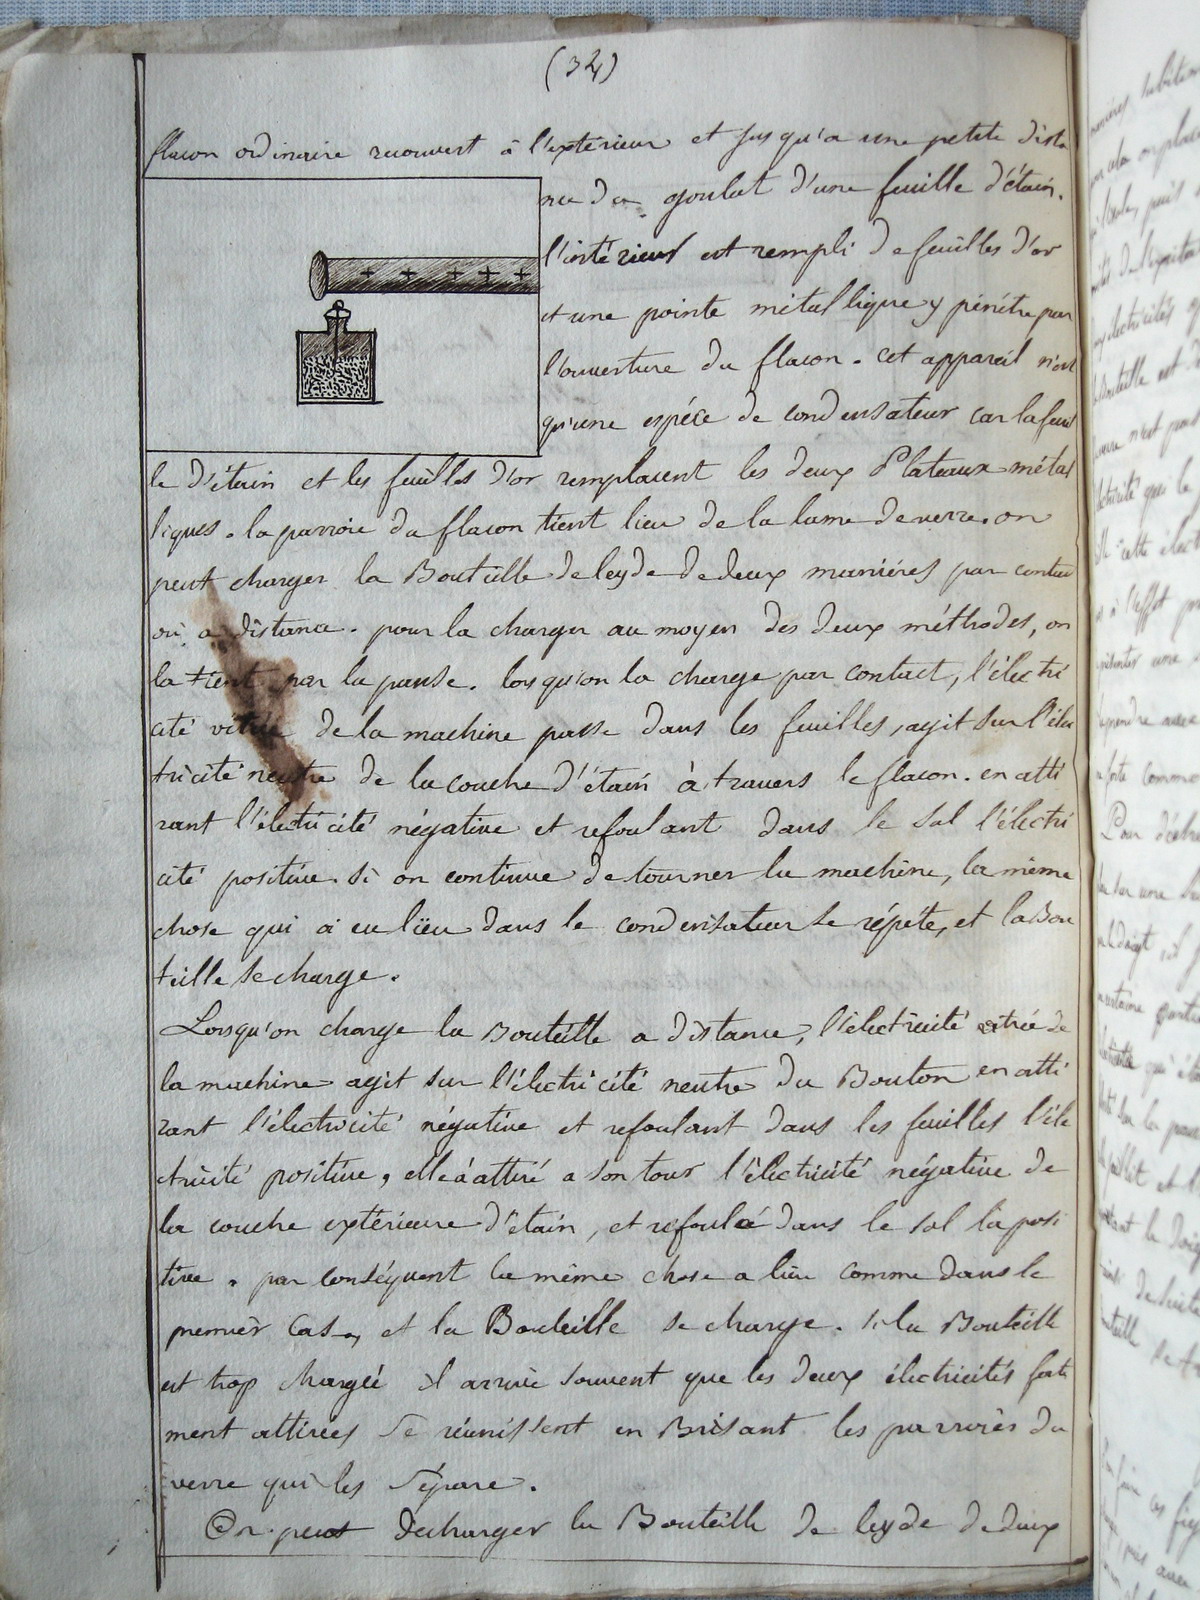 (34)
flacon ordinaire recouvert à l'extérieur et jusqu'a une petite dista
nce du goulut d'une feuille d'étain.
l'intérieur est rempli de feuilles d'or
et une pointe métallique y pénétre par
l'ouverture du flacon. cet appareil n'est
qu'une espéce de condensateur car la feuil
le d'étain et les feuilles d'or remplacent les deux Plateaux métal
liques. la parroie du flacon tient lieu de la lame de verre. on
peut charger la Bouteille de leyde de deux maniéres par contac
ou a distance. pour la charger au moyen des deux méthodes, on
la tient par la panse. lorsqu'on la charge par contact, l'électri
cité vitrée de la machine passe dans les feuilles, agit sur l'élec
tricité neutre de la couche d'étain à travers le flacon. en atti
rant l'électricité négative et refoulant dans le sol l'électri
cité positive. si on continue de tourner la machine, la même
chose qui a eu lieu dans le condensateur se répéte, et la Bou
teille se charge.
Lorsqu'on charge la Bouteille a distance, l'électricité vitrée de
la machine agit sur l'électricité neutre du Bouton en atti
rant l'électricité négative et refoulant dans les feuilles l'éle
ctricité positive, elle a attiré a son tour l'électricité négative de
la couche extérieure d'étain, et refoulé dans le sol la posi
tive. par conséquent la même chose a lieu comme dans le
premier cas, et la Bouteille se charge. si la Bouteille
est trop chargée il arrive souvent que les deux électricités forte
ment attirées se réunissent en Brisant les parroies du
verre qui les sépare.
On peut décharger la Bouteille de leyde de deux